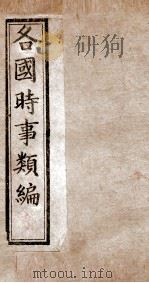 各國時事類編
mtoou.info